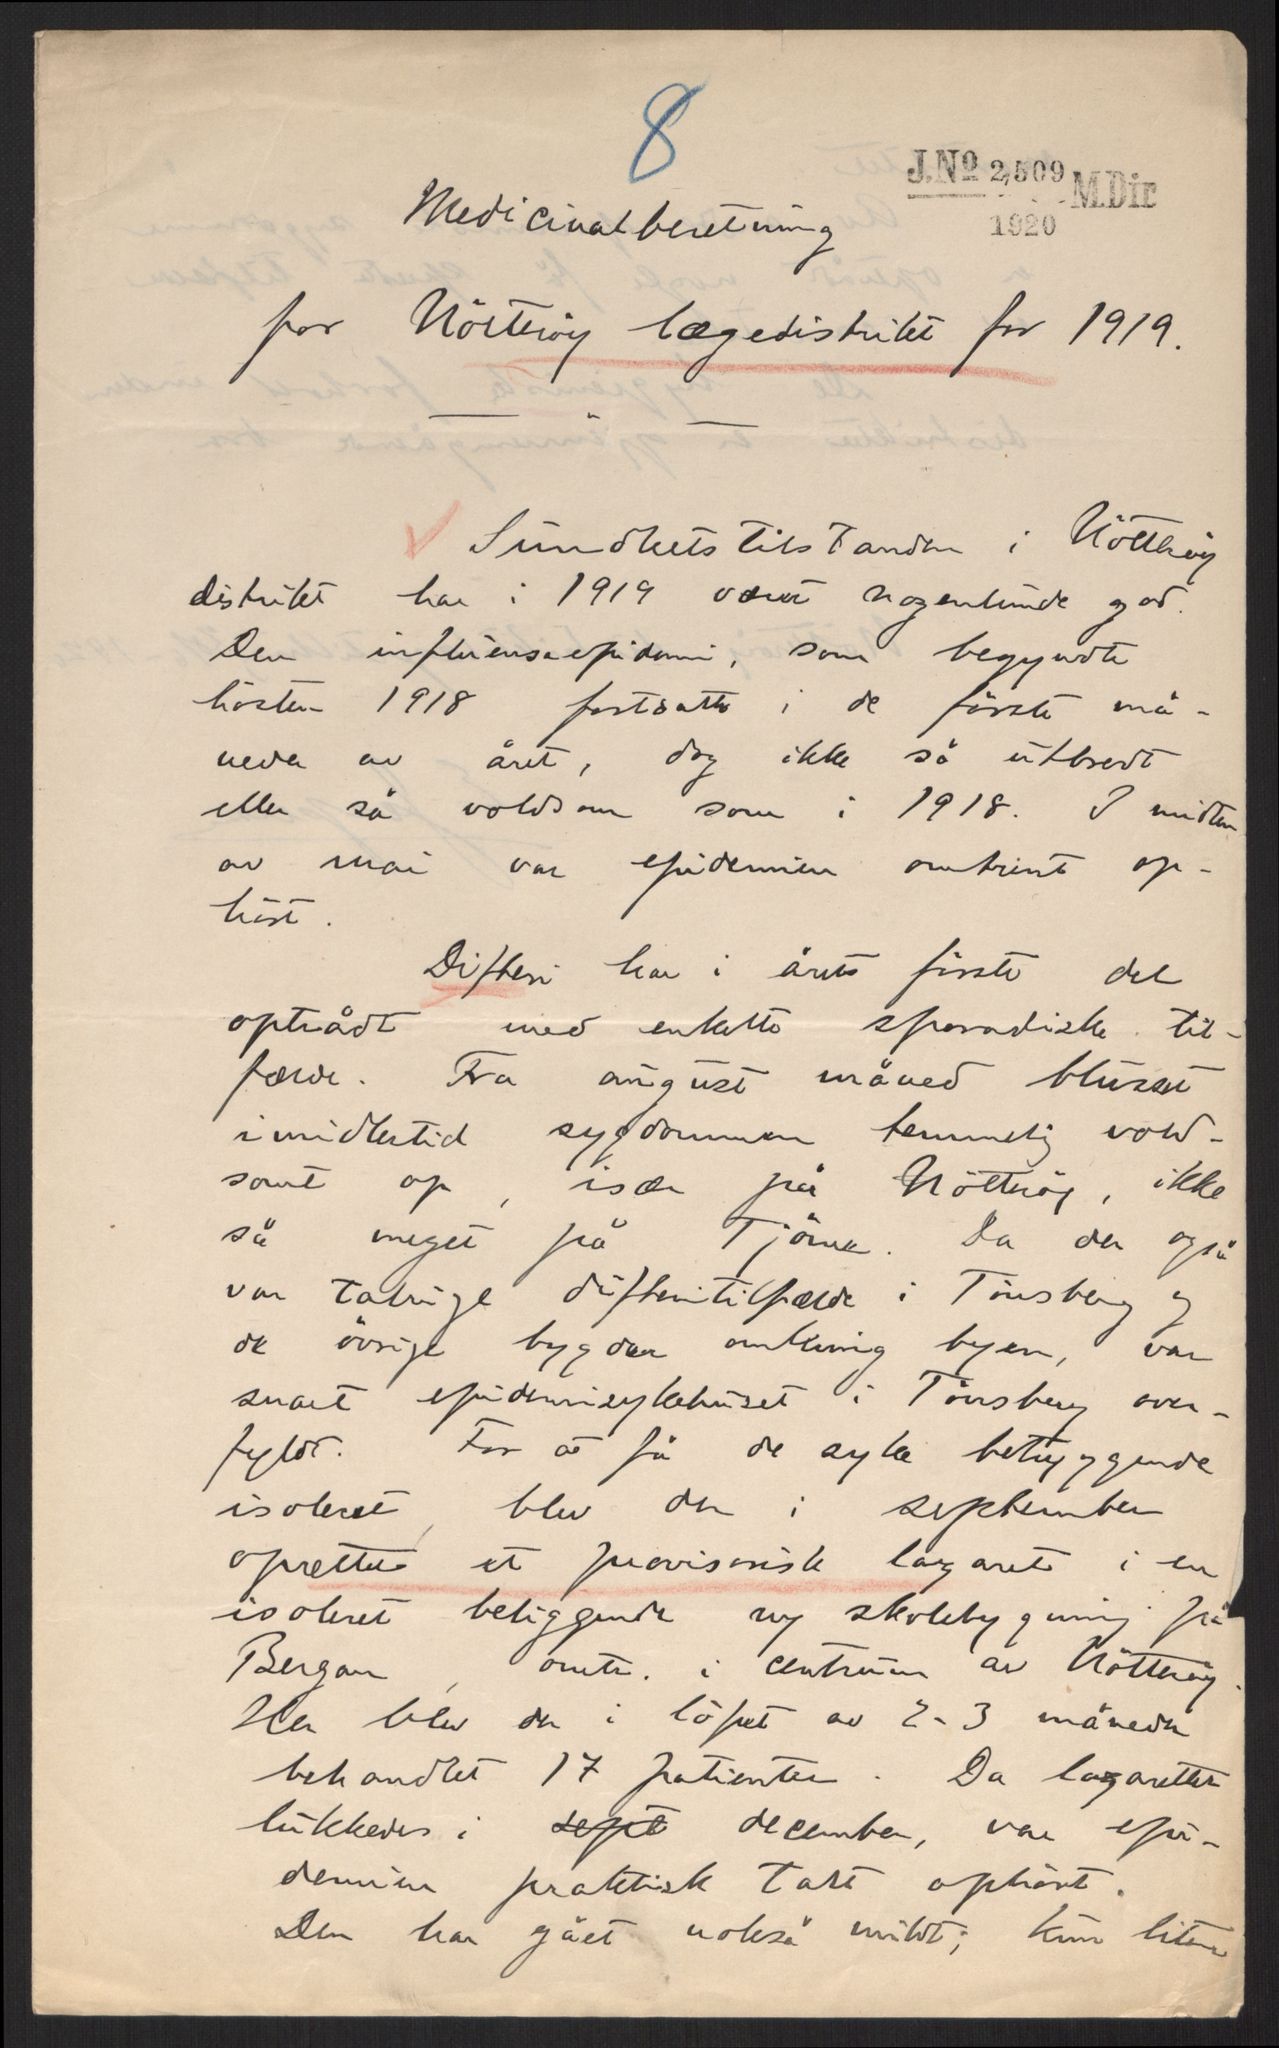 8
J.No 2,509 M.Dir
1920
Medicinalberetning
for Nötteröy lægedistrikt for 1919.
Sundhetstilstanden i Nötteröy
distrikt har i 1919 været nogenlunde god.
Den influensaepidemi, som begyndte
hösten 1918 fortsatte i de förste må-
neder av året, dog ikke så utbredt
eller så voldsom som i 1918. I midten
av mai var epidemien omtrent op-
hört.
Difteri har i årets förste del
optrådt med enkelte sporadiske til-
fælde. Fra august måned blusset
imidlertid sygdommen temmelig vold-
somt op, især på Nötteröy, ikke
så meget på Tjöme. Da der også
var talrige difteritilfælde i Tönsberg og
de övrige bygder omkring byen, var
snart epidemisykehuset i Tönsberg over-
fyldt. For å få de syke betryggende
isoleret, blev der i september
oprettet et provisorisk lazaret i en
isoleret beliggende ny skolebygning på
Bergan, omtr. i centrum av Nötteröy.
Her blev der i löpet av 2-3 måneder
behandlet 17 patienter. Da lazarettet
lukkedes i sept december, var epi-
demien praktisk talt ophört.
Den har gået også mildt; kun liten